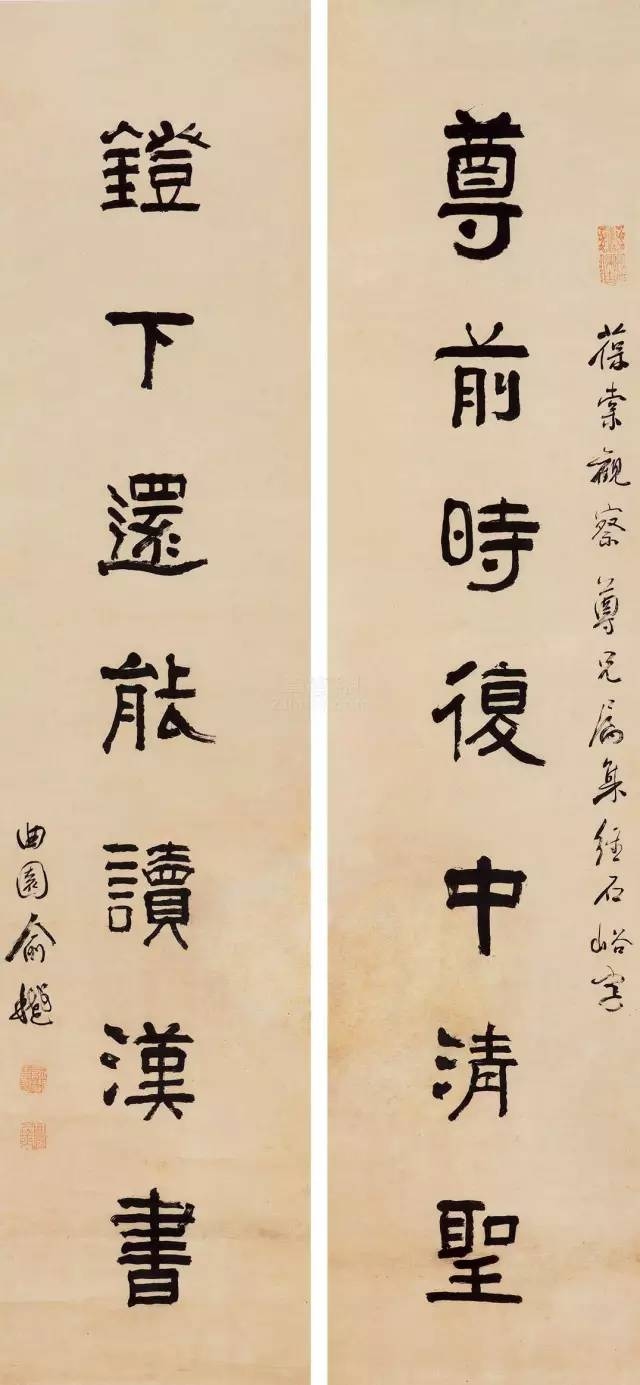 葆素觀察尊兄屬集經石峪字
尊前時復中清聖
鐙下還能讀漢書
曲園俞樾